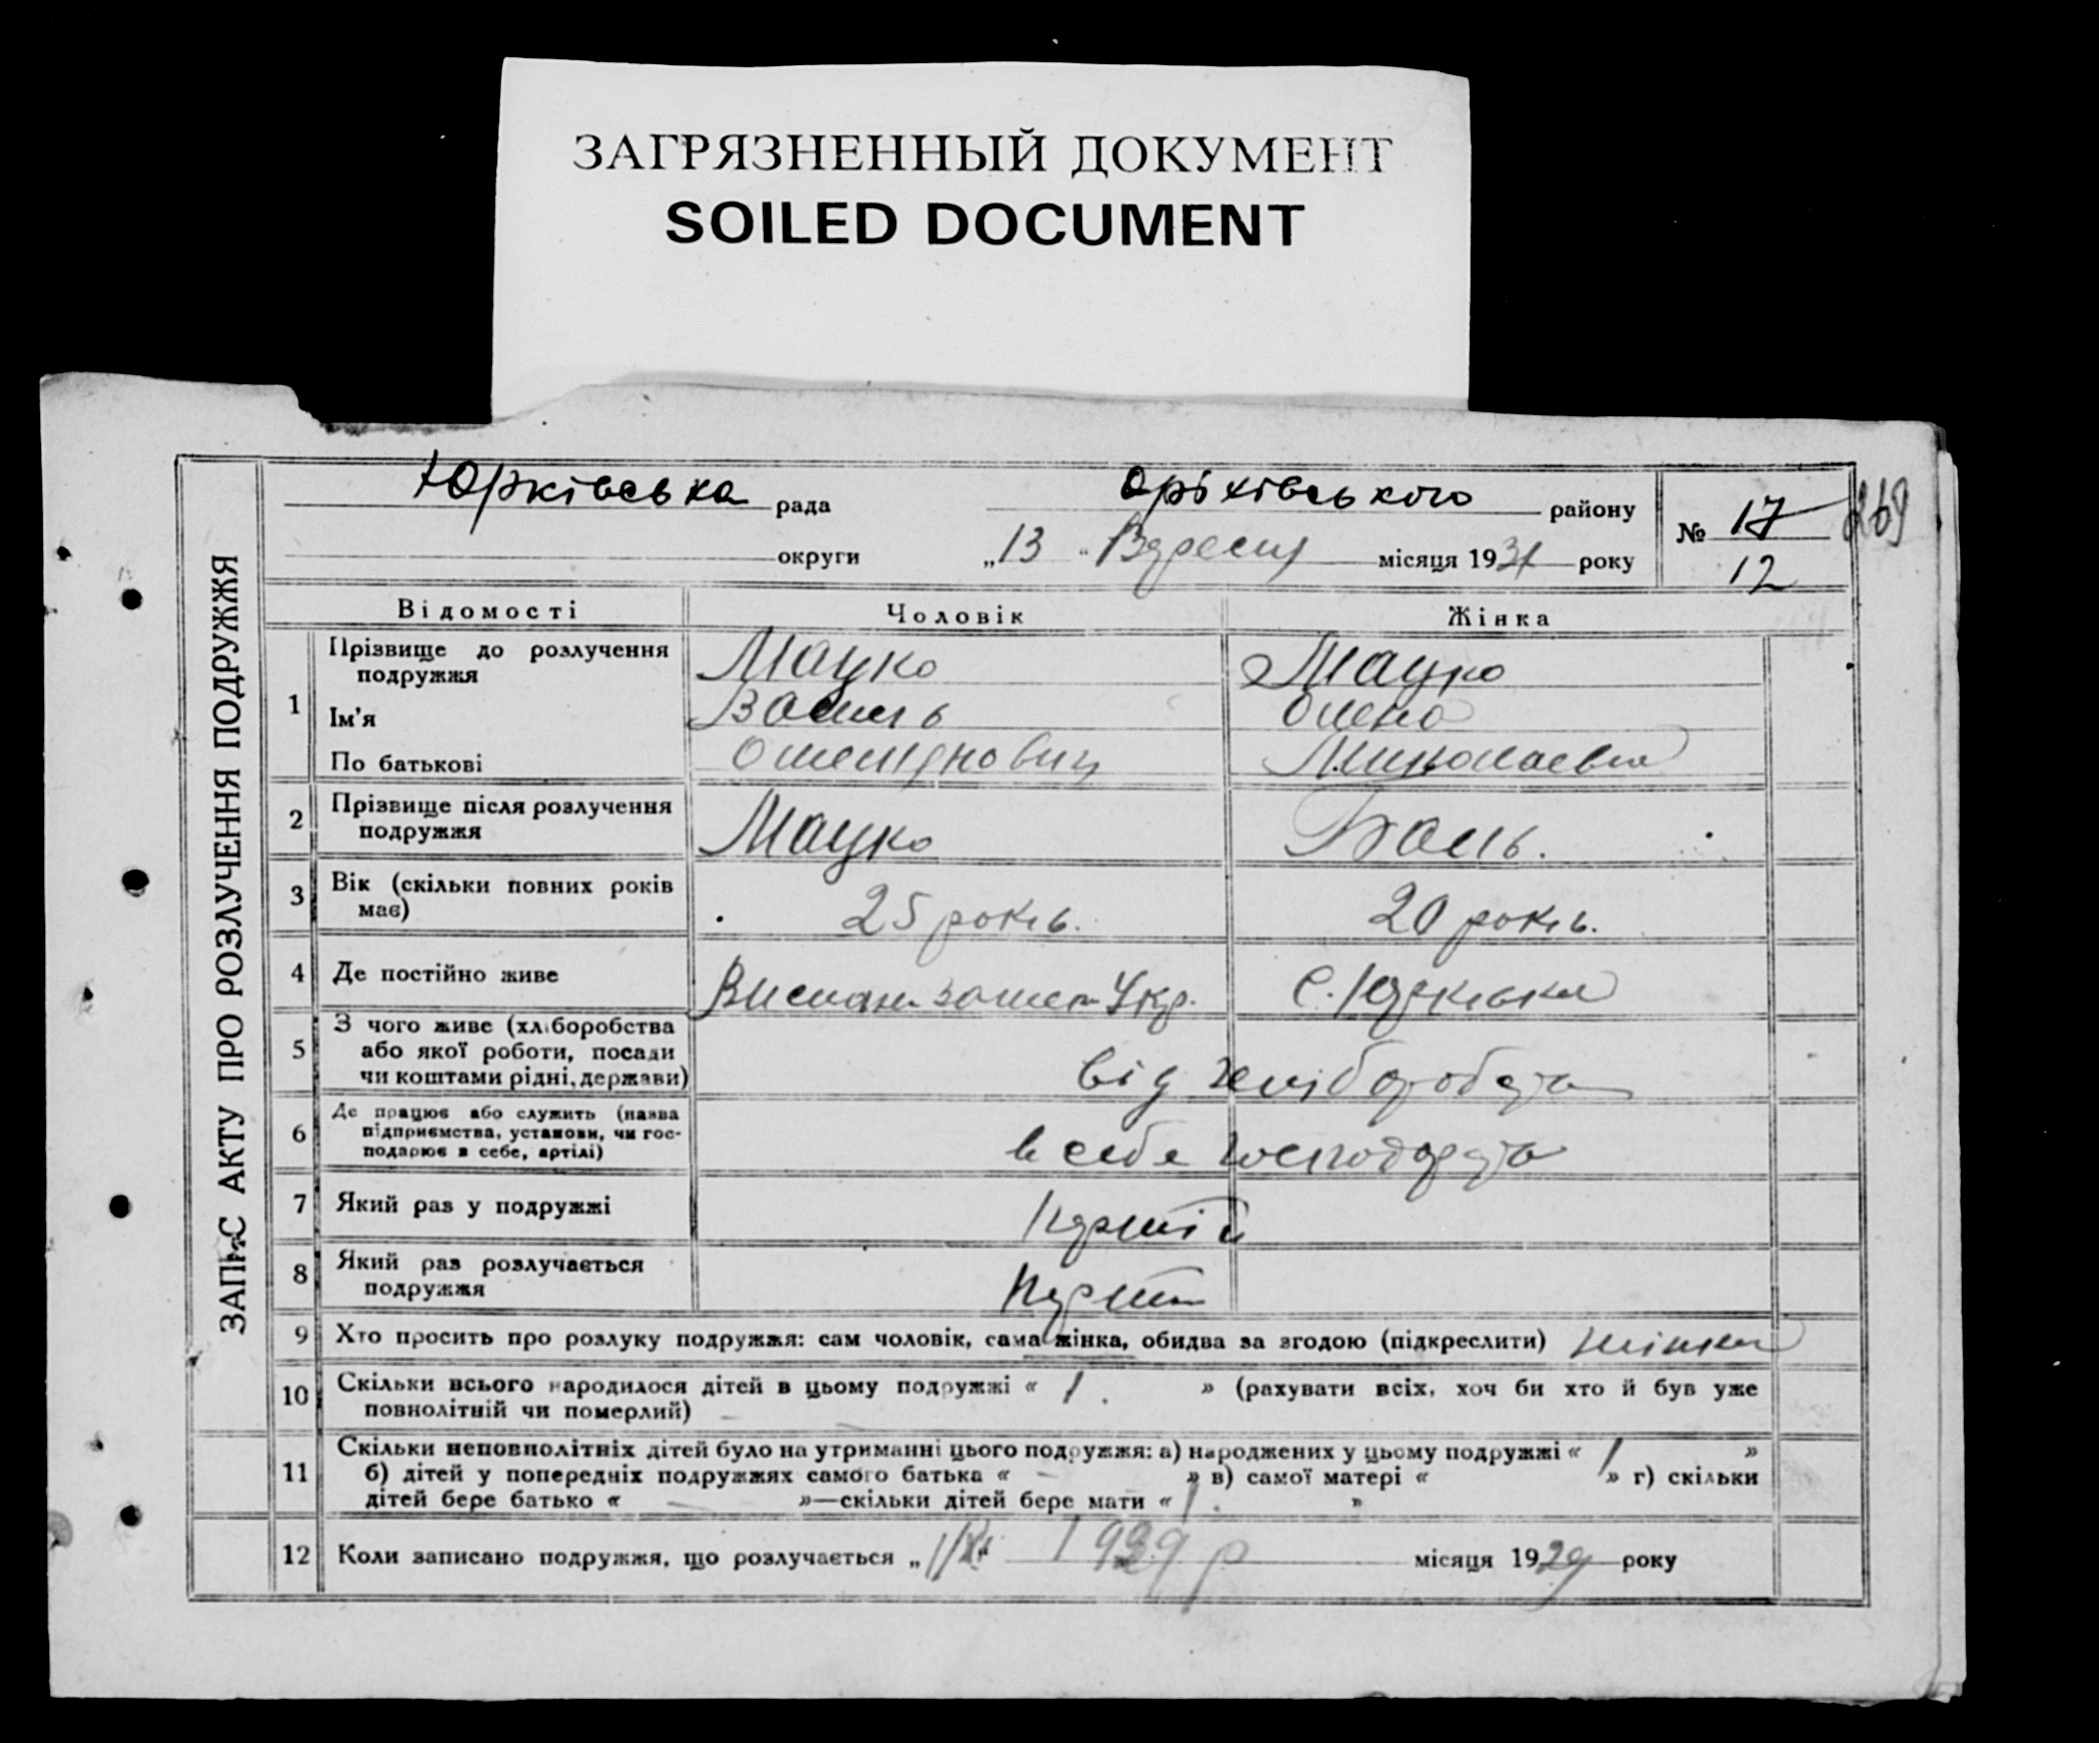 ЗАГРЯЗНЕННЫЙ ДОКУМЕНТ
SOILED DOCUMENT
Юрківська рада Оріхівського району № 17 269
округи „13“ Вересня місяця 1931 року 12
ЗАПИС АКТУ ПРО РОЗЛУЧЕННЯ ПОДРУЖЖЯ
Відомості Чоловік Жінка
1 Прізвище до розлучення подружжя Мацко Мацко
Ім'я Василь Олена
По батькові Миколаевна
2 Прізвище після розлучення подружжя Мацко Баль.
3 Вік (скільки повних років має) 25 років. 20 років.
4 Де постійно живе Вислан за меж Укр. С. Юрківка
5 З чого живе (хліборобства
або якої роботи, посади
чи коштами рідні, держави) від хліборобства
6 Де працює або служить (назва
підприємства, установи, чи гос-
подарює в себе, артілі) в себе господарства
7 Який раз у подружжі Перший
8 Який раз розлучається подружжя Перший
9 Хто просить про розлуку подружжя: сам чоловік, сама жінка, обидва за згодою (підкреслити) жінка
10 Скільки всього народилося дітей в цьому подружжі « 1. » (рахувати всіх, хоч би хто й був уже
повнолітній чи померлий) –
11 Скільки неповнолітніх дітей було на утриманні цього подружжя: а) народжених у цьому подружжі « 1 »
б) дітей у попередніх подружжях самого батька « – » в) самої матері « » г) скільки
дітей бере батько « – »—скільки дітей бере мати « 1. »
12 Коли записано подружжя, що розлучається „ 1929 р місяця 1929 року